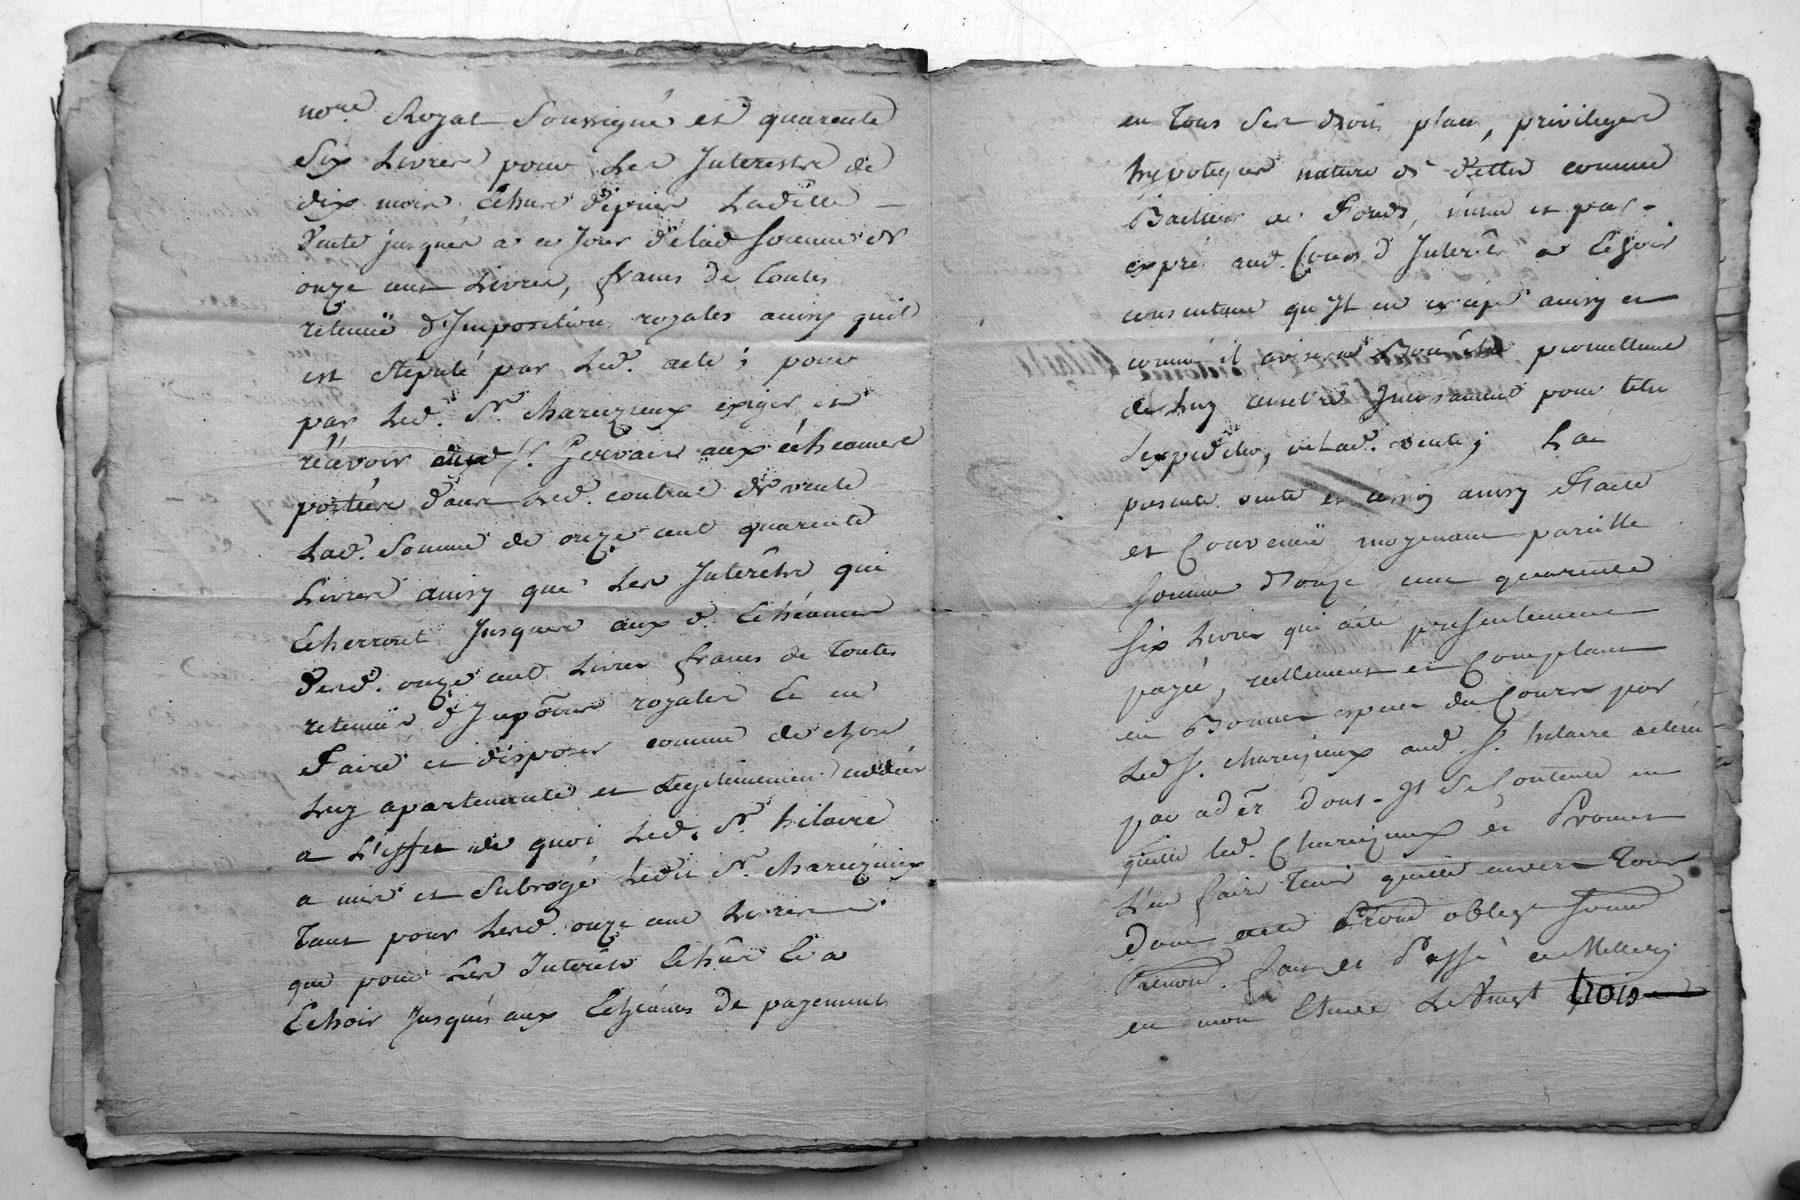 nore Royal Soussigné et quarente
Six Livres pour Les Interestz de
dix mois Echus depuis Laditte
vente jusques a ce Jour de lad somme de
onze cent Livres, francs de toutes
retenüe d'Imposition royales ainsy quil
est stipulé par Led. acte ; pour
par Led. Sr. Marezieux exiger et
reçavoir dud Sr. Gervais aux écheances
portées dans Led. contrat de vente
Lad. Somme de onze cent quarente
Livres ainsy que Les Interêts qui
Echerront Jusques aux d. Echéances
desd. onze cent Livres francs de toutes
retenüe d'Impôons royales Et en
Faire et disposer comme de chose
Luy apartenante et Legitimement
a L'effet de quoi Led. Sr. hilaire
a mis et Subrogé Ledit Sr. Marezieux
tant pour Lesd. onze cent Livres
que pour Les Interêts Echûs Et a
Echoir Jusques aux Echéances de payements
en tous Ses droits place, privileges
hypoteques nature de dette comme
Bailleur de Fonds, même et par-
exprés aud. Cours d'Interêts a Echoir
consentant qu'Il en ainsy et
comme il avisera promettant
de Luy Incessament pour titre
L'expedition de Lad. vente ; La
presente vente et ainsy Faite
et Convenüe moyenant pareille
Somme d'onze cent quarente
Six Livres qui a été presentement
payée, réellement et Comptant
en Bonnes especes du Cours par
Led Sr. Marezieux aud Sr. hilaire
par dont Il Se Contente en
quitte led. et Promet
L'en faire tenir quitte envers tous
Dont acte Prom oblige Soum
Renonc. fait et Passé a Millery
en mon Etude Le Vingt trois